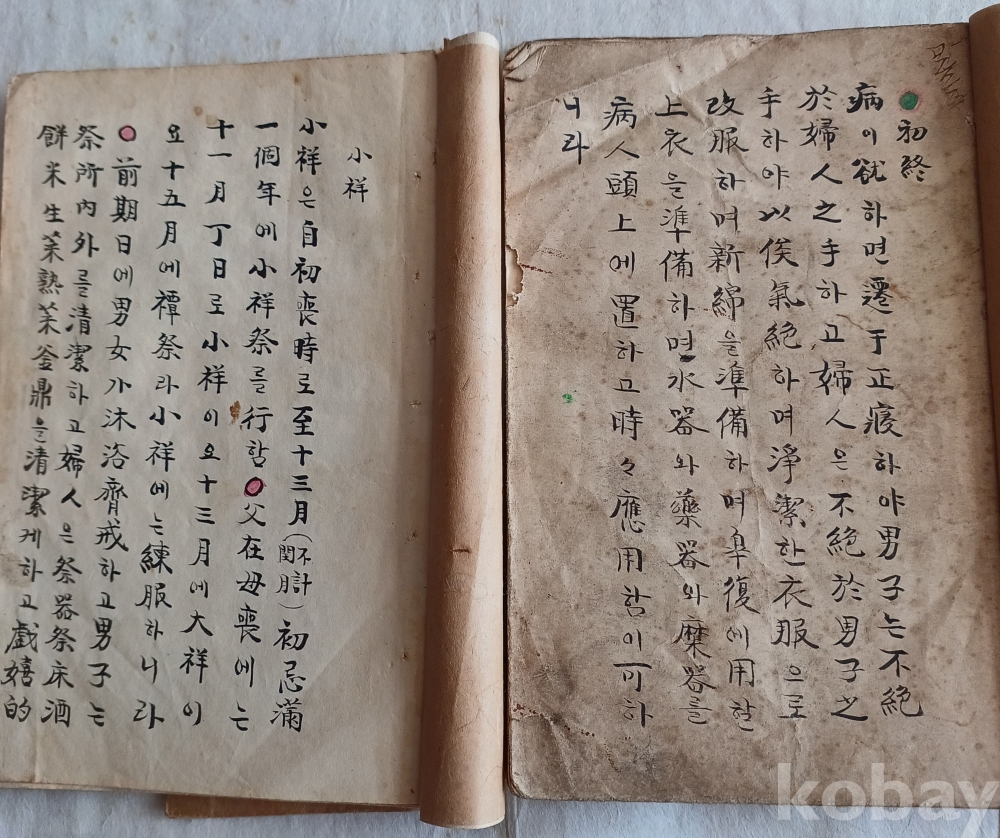 初終
病이欲하면遷于正寢하야男子는不絶
於婦人之手하고婦人은不絶於男子之
手하야以俟氣絶하며淨潔한衣服으로
改服하며新綿을準備하며皐復에用한
上衣을準備하면水器와藥器와糜器를
病人頭上에置하고時々應用함이可하
니라
小祥
小祥은自初喪時로至十三月(不計閏月)初忌滿
一個年에小祥祭를行함○父在母喪에는
十一月丁日로小祥이요十三月에大祥이
요十五月에禫祭라小祥에는練服하니라
○前期日에男女가沐浴齊戒하고男子는
祭所內外를清潔하고婦人은祭器祭床酒
餠米生菜熟菜釜鼎을清潔케하고戱嬉的
kobay